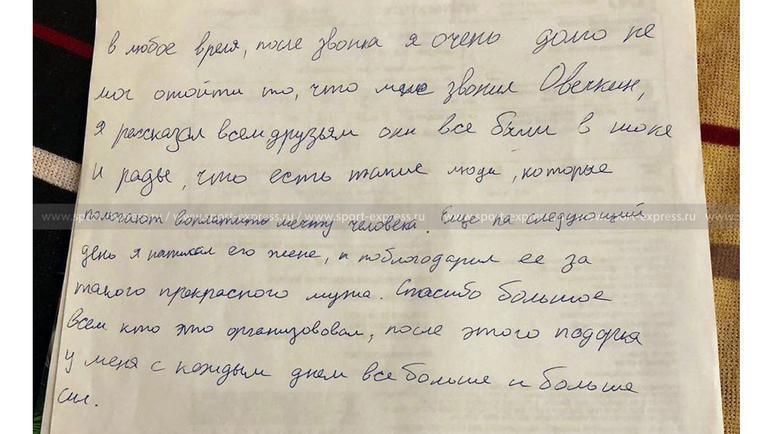 в любое время, после звонка я очень долго не
мог отойти то, что мне звонил Овечкин,
я рассказал всем друзьям они все были в шоке
и рады, что есть такие люди, которые
www.sport-express.ru / www.sport-express.ru / www.sport-express.ru
помогают воплатить мечту человека. Еще на следующий
день я написал его жене, и поблогодарил ее за
такого прекрасного мужа. Спасибо большое
всем кто это организововал, после этого подарка
у меня с каждым днем все больше и больше
сил.